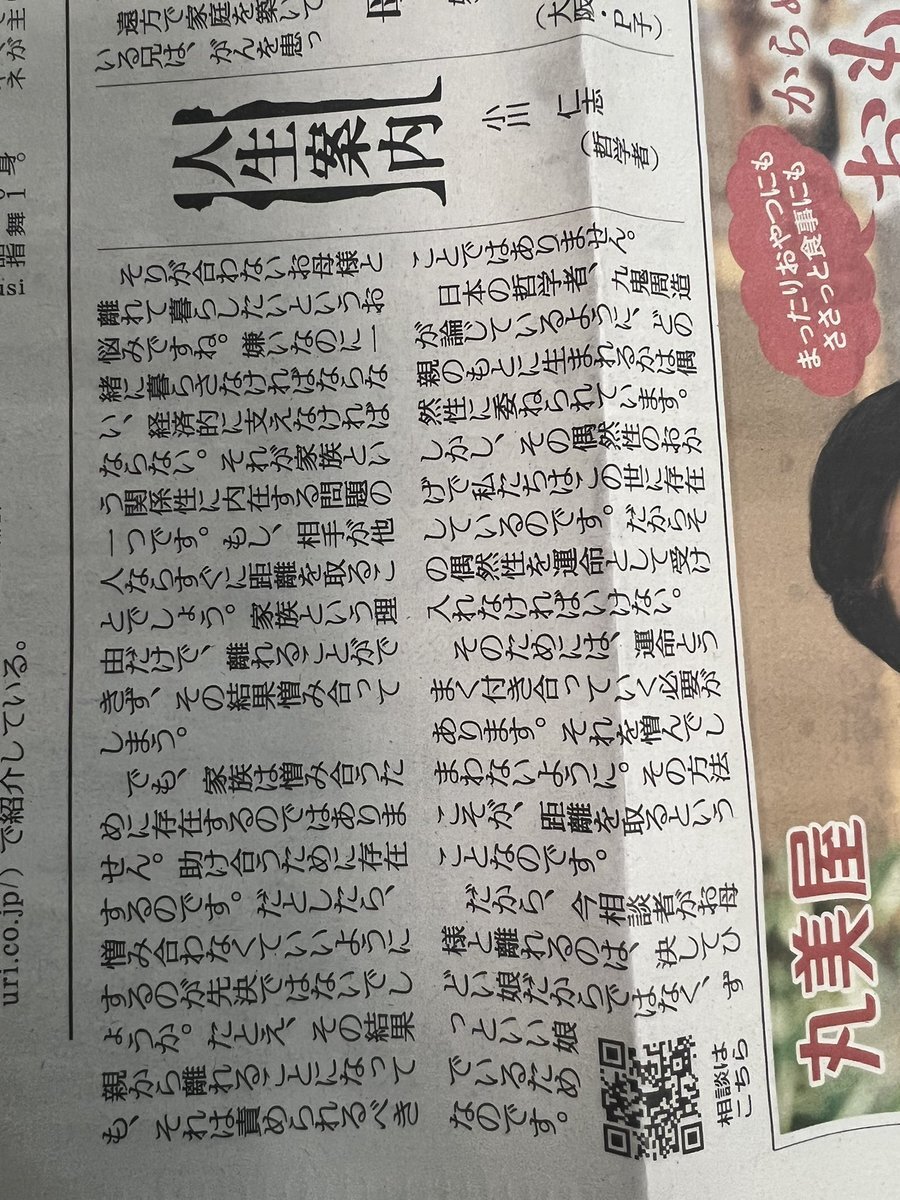 遠方で家庭を築いて
いる兄は、がんを患っ
母
(大阪・P子)
人生案内
小川 仁志
(哲学者)
そりが合わないお母様と
離れて暮らしたいというお
悩みですね。嫌いなのに一
緒に暮らさなければならな
い、経済的に支えなければ
ならない。それが家族とい
う関係性に内在する問題の
一つです。もし、相手が他
人ならすぐに距離を取るこ
とでしょう。家族という理
由だけで、離れることがで
きず、その結果憎み合って
しまう。
でも、家族は憎み合うた
めに存在するのではありま
せん。助け合うために存在
するのです。だとしたら、
憎み合わなくていいように
するのが先決ではないでし
ょうか。たとえ、その結果
親から離れることになって
も、それは責められるべき
ことではありません。
日本の哲学者、九鬼周造
が論じているように、どの
親のもとに生まれるかは偶
然性に委ねられています。
しかし、その偶然性のおか
げで私たちはこの世に存在
しているのです。だからそ
の偶然性を運命として受け
入れなければいけない。
そのためには、運命とう
まく付き合っていく必要が
あります。それを憎んでし
まわないように。その方法
こそが、距離を取るという
ことなのです。
だから、今相談者がお母
様と離れるのは、決してひ
どい娘だからではなく、ず
っといい娘
でいるため
なのです。
相談は
こちら
uri.co.jp/）で紹介している。
まったりおやつにも
ささっと食事にも
丸美屋